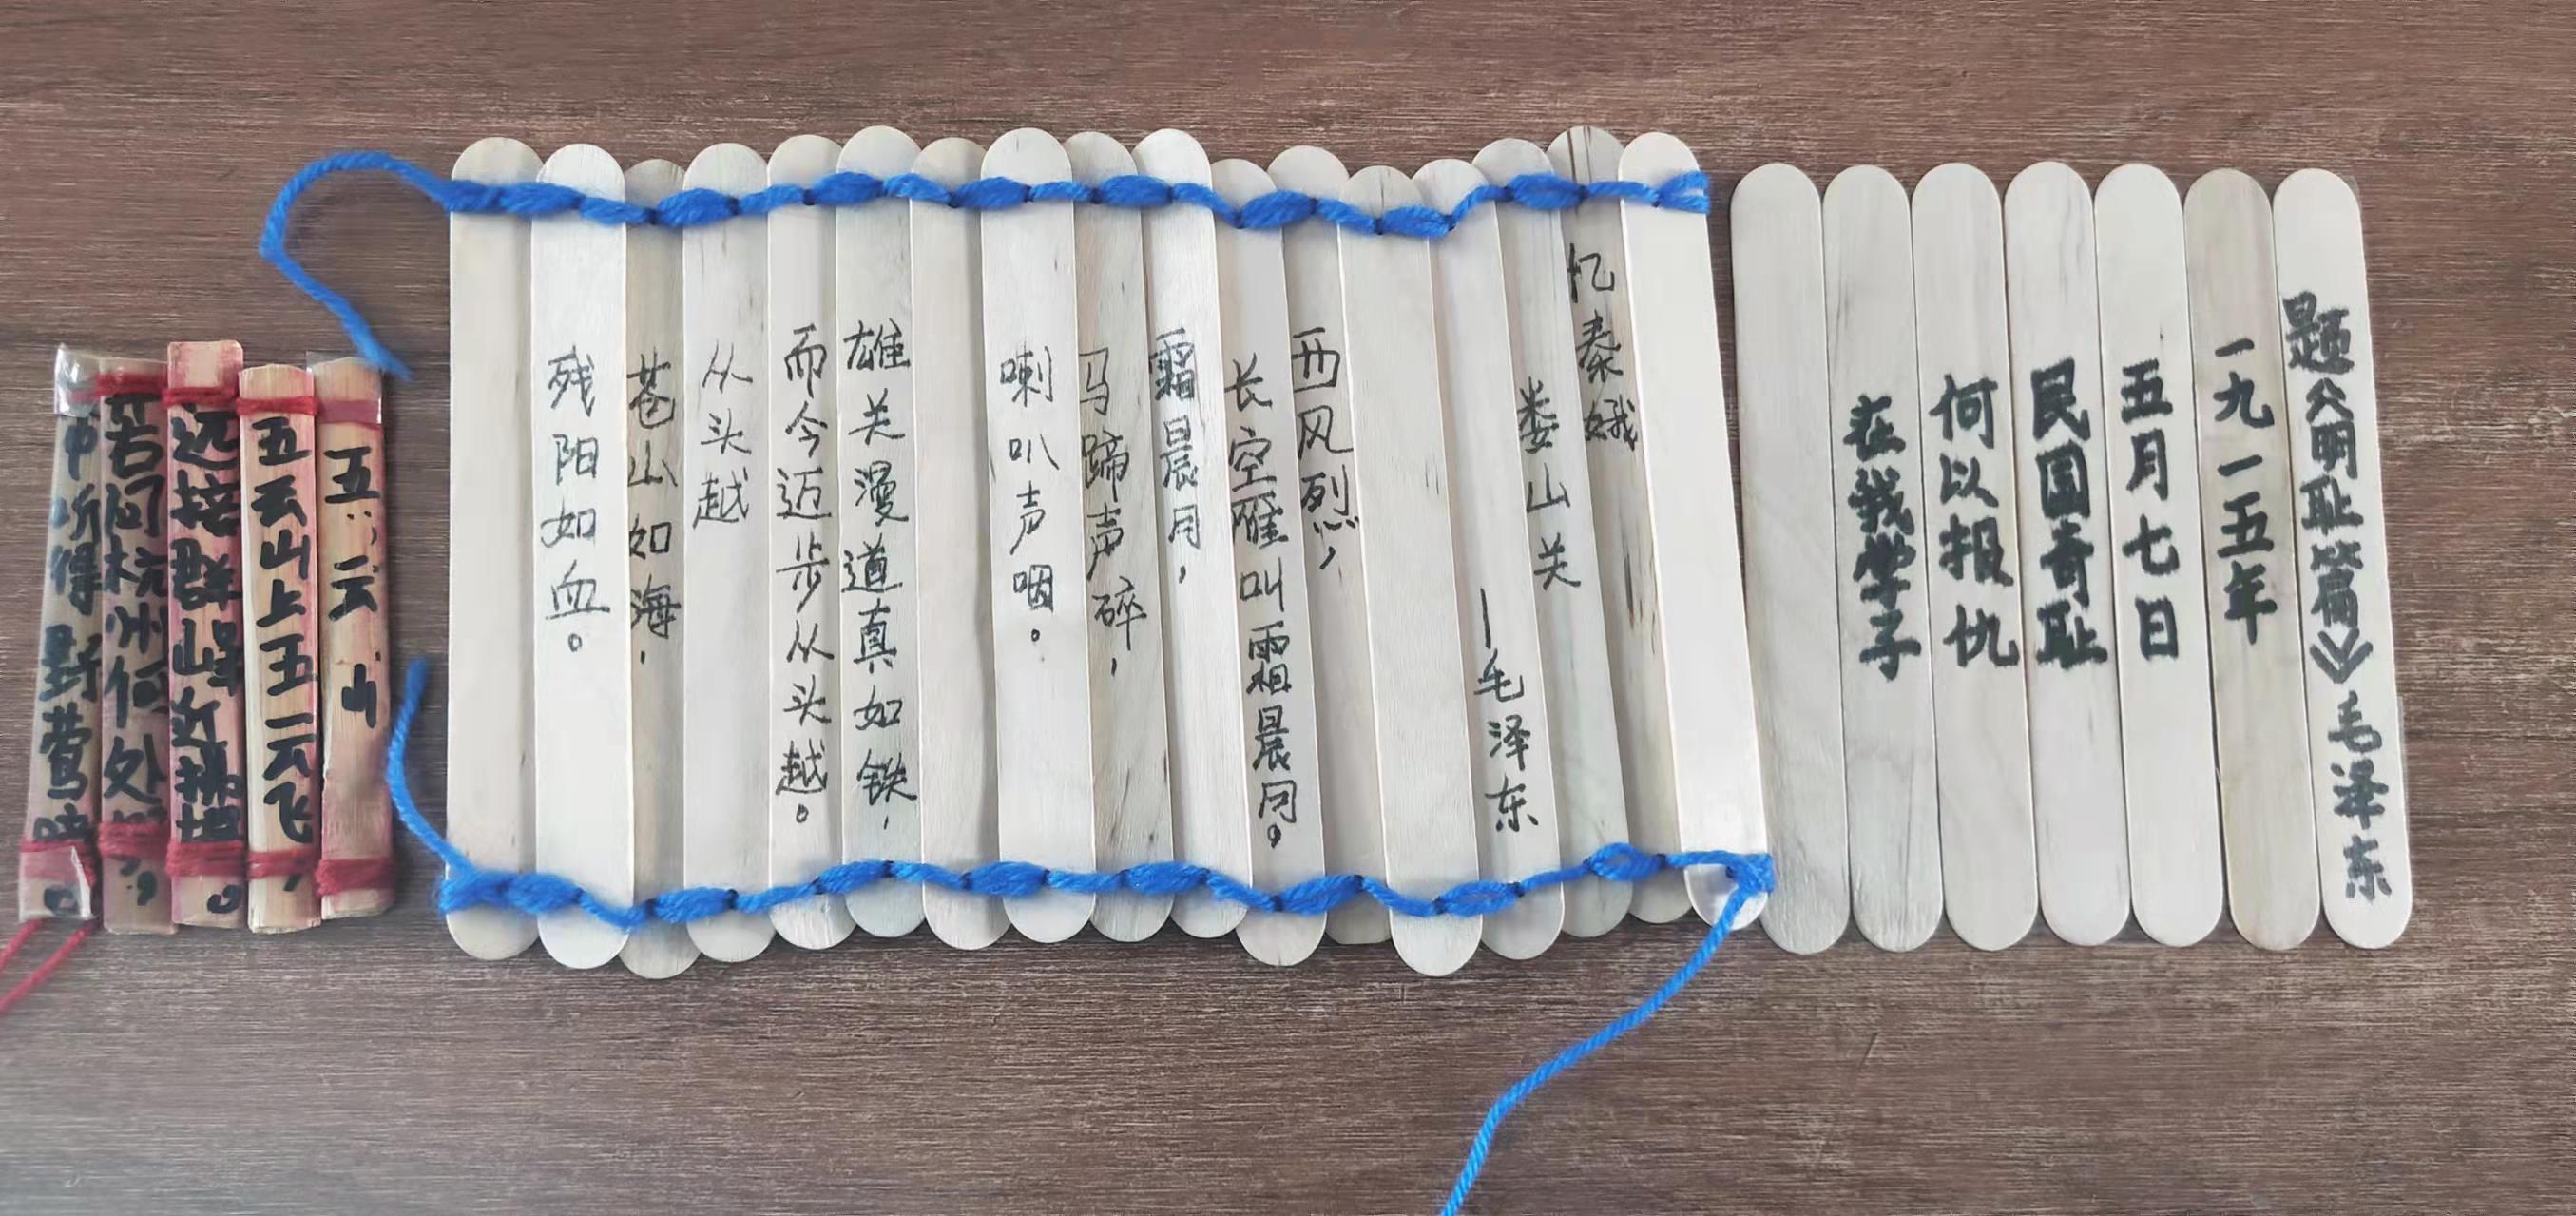 题《明耻篇》毛泽东
一九一五年
五月七日
民国奇耻
何以报仇
在我学子
忆秦娥
娄山关
—毛泽东
西风烈,
长空雁叫霜晨月。
霜晨月,
马蹄声碎,
喇叭声咽。
雄关漫道真如铁,
而今迈步从头越。
从头越
苍山如海,
残阳如血。
五云山
五云山上五云飞,
远接群峰近拂堤。
若问杭州何处
中听得野莺啼。